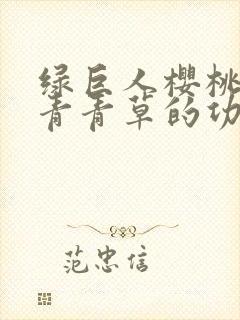 绿巨人樱桃
青青草的功
范忠信